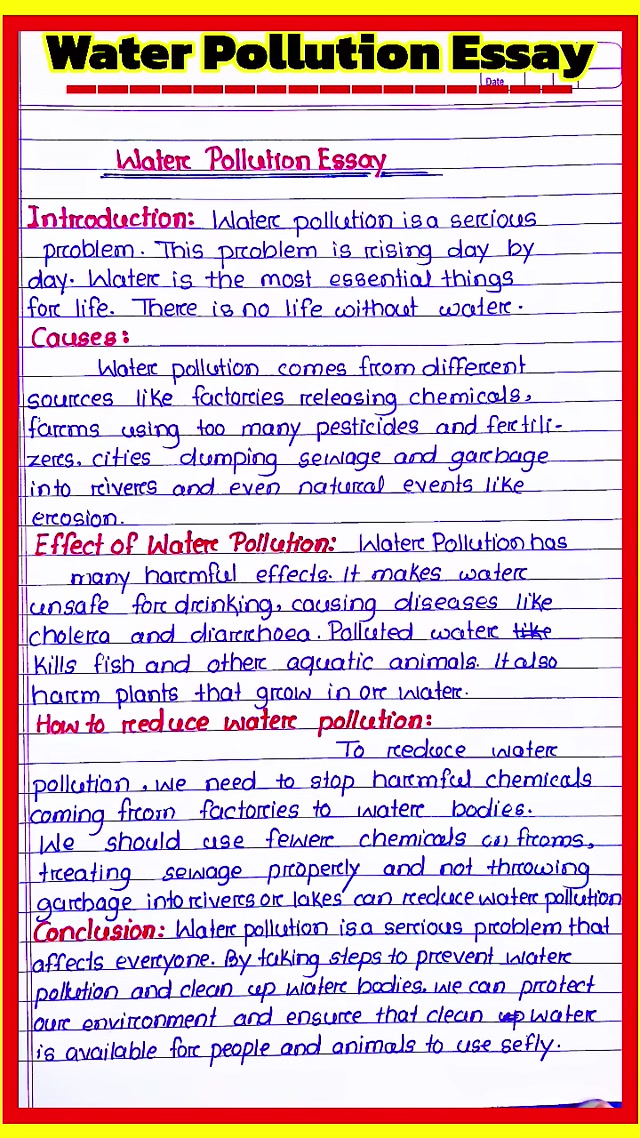 Water Pollution Essay
Date
Water Pollution Essay
Introduction: Water pollution is a serious
problem. This problem is rising day by
day. Water is the most essential things
for life. There is no life without water.
Causes:
Water pollution comes from different
sources like factories releasing chemicals,
farms using too many pesticides and fertili-
zers, cities dumping sewage and garbage
into rivers and even natural events like
erosion.
Effect of Water Pollution: Water Pollution has
many harmful effects. It makes water
unsafe for drinking, causing diseases like
cholera and diarrhoea. Polluted water like
kills fish and other aquatic animals. It also
harm plants that grow in or water.
How to reduce water pollution:
To reduce water
pollution, we need to stop harmful chemicals
coming from factories to water bodies.
We should use fewer chemicals on froms,
treating sewage properly and not throwing
garbage into rivers or lakes can reduce water pollution
Conclusion: Water pollution is a serious problem that
affects everyone. By taking steps to prevent water
pollution and clean up water bodies, we can protect
our environment and ensure that clean up water
is available for people and animals to use sefly.